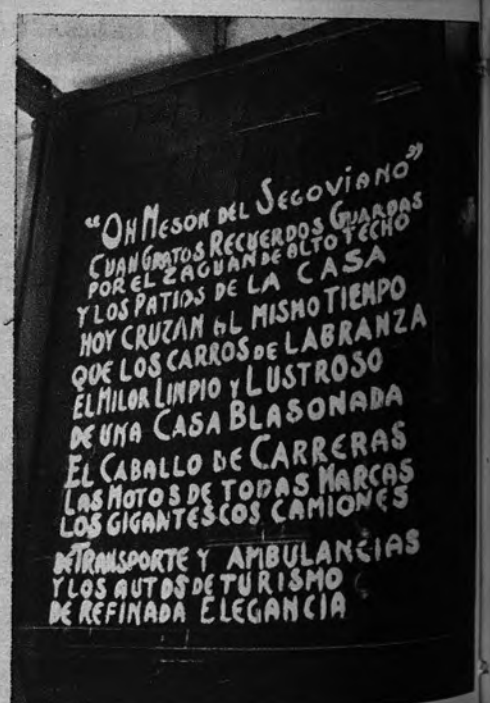 “OH MESON DEL SEGOVIANO”
CUAN GRATOS RECUERDOS GUARDAS
POR EL ZAGUAN DE ALTO TECHO
Y LOS PATIOS DE LA CASA
HOY CRUZAN AL MISMO TIEMPO
QUE LOS CARROS DE LABRANZA
EL MILOR LINPIO Y LUSTROSO
DE UNA CASA BLASONADA
EL CABALLO DE CARRERAS
LAS MOTOS DE TODAS MARCAS
LOS GIGANTESCOS CAMIONES
DE TRANSPORTE Y AMBULANCIAS
Y LOS AUTOS DE TURISMO
DE REFINADA ELEGANCIA